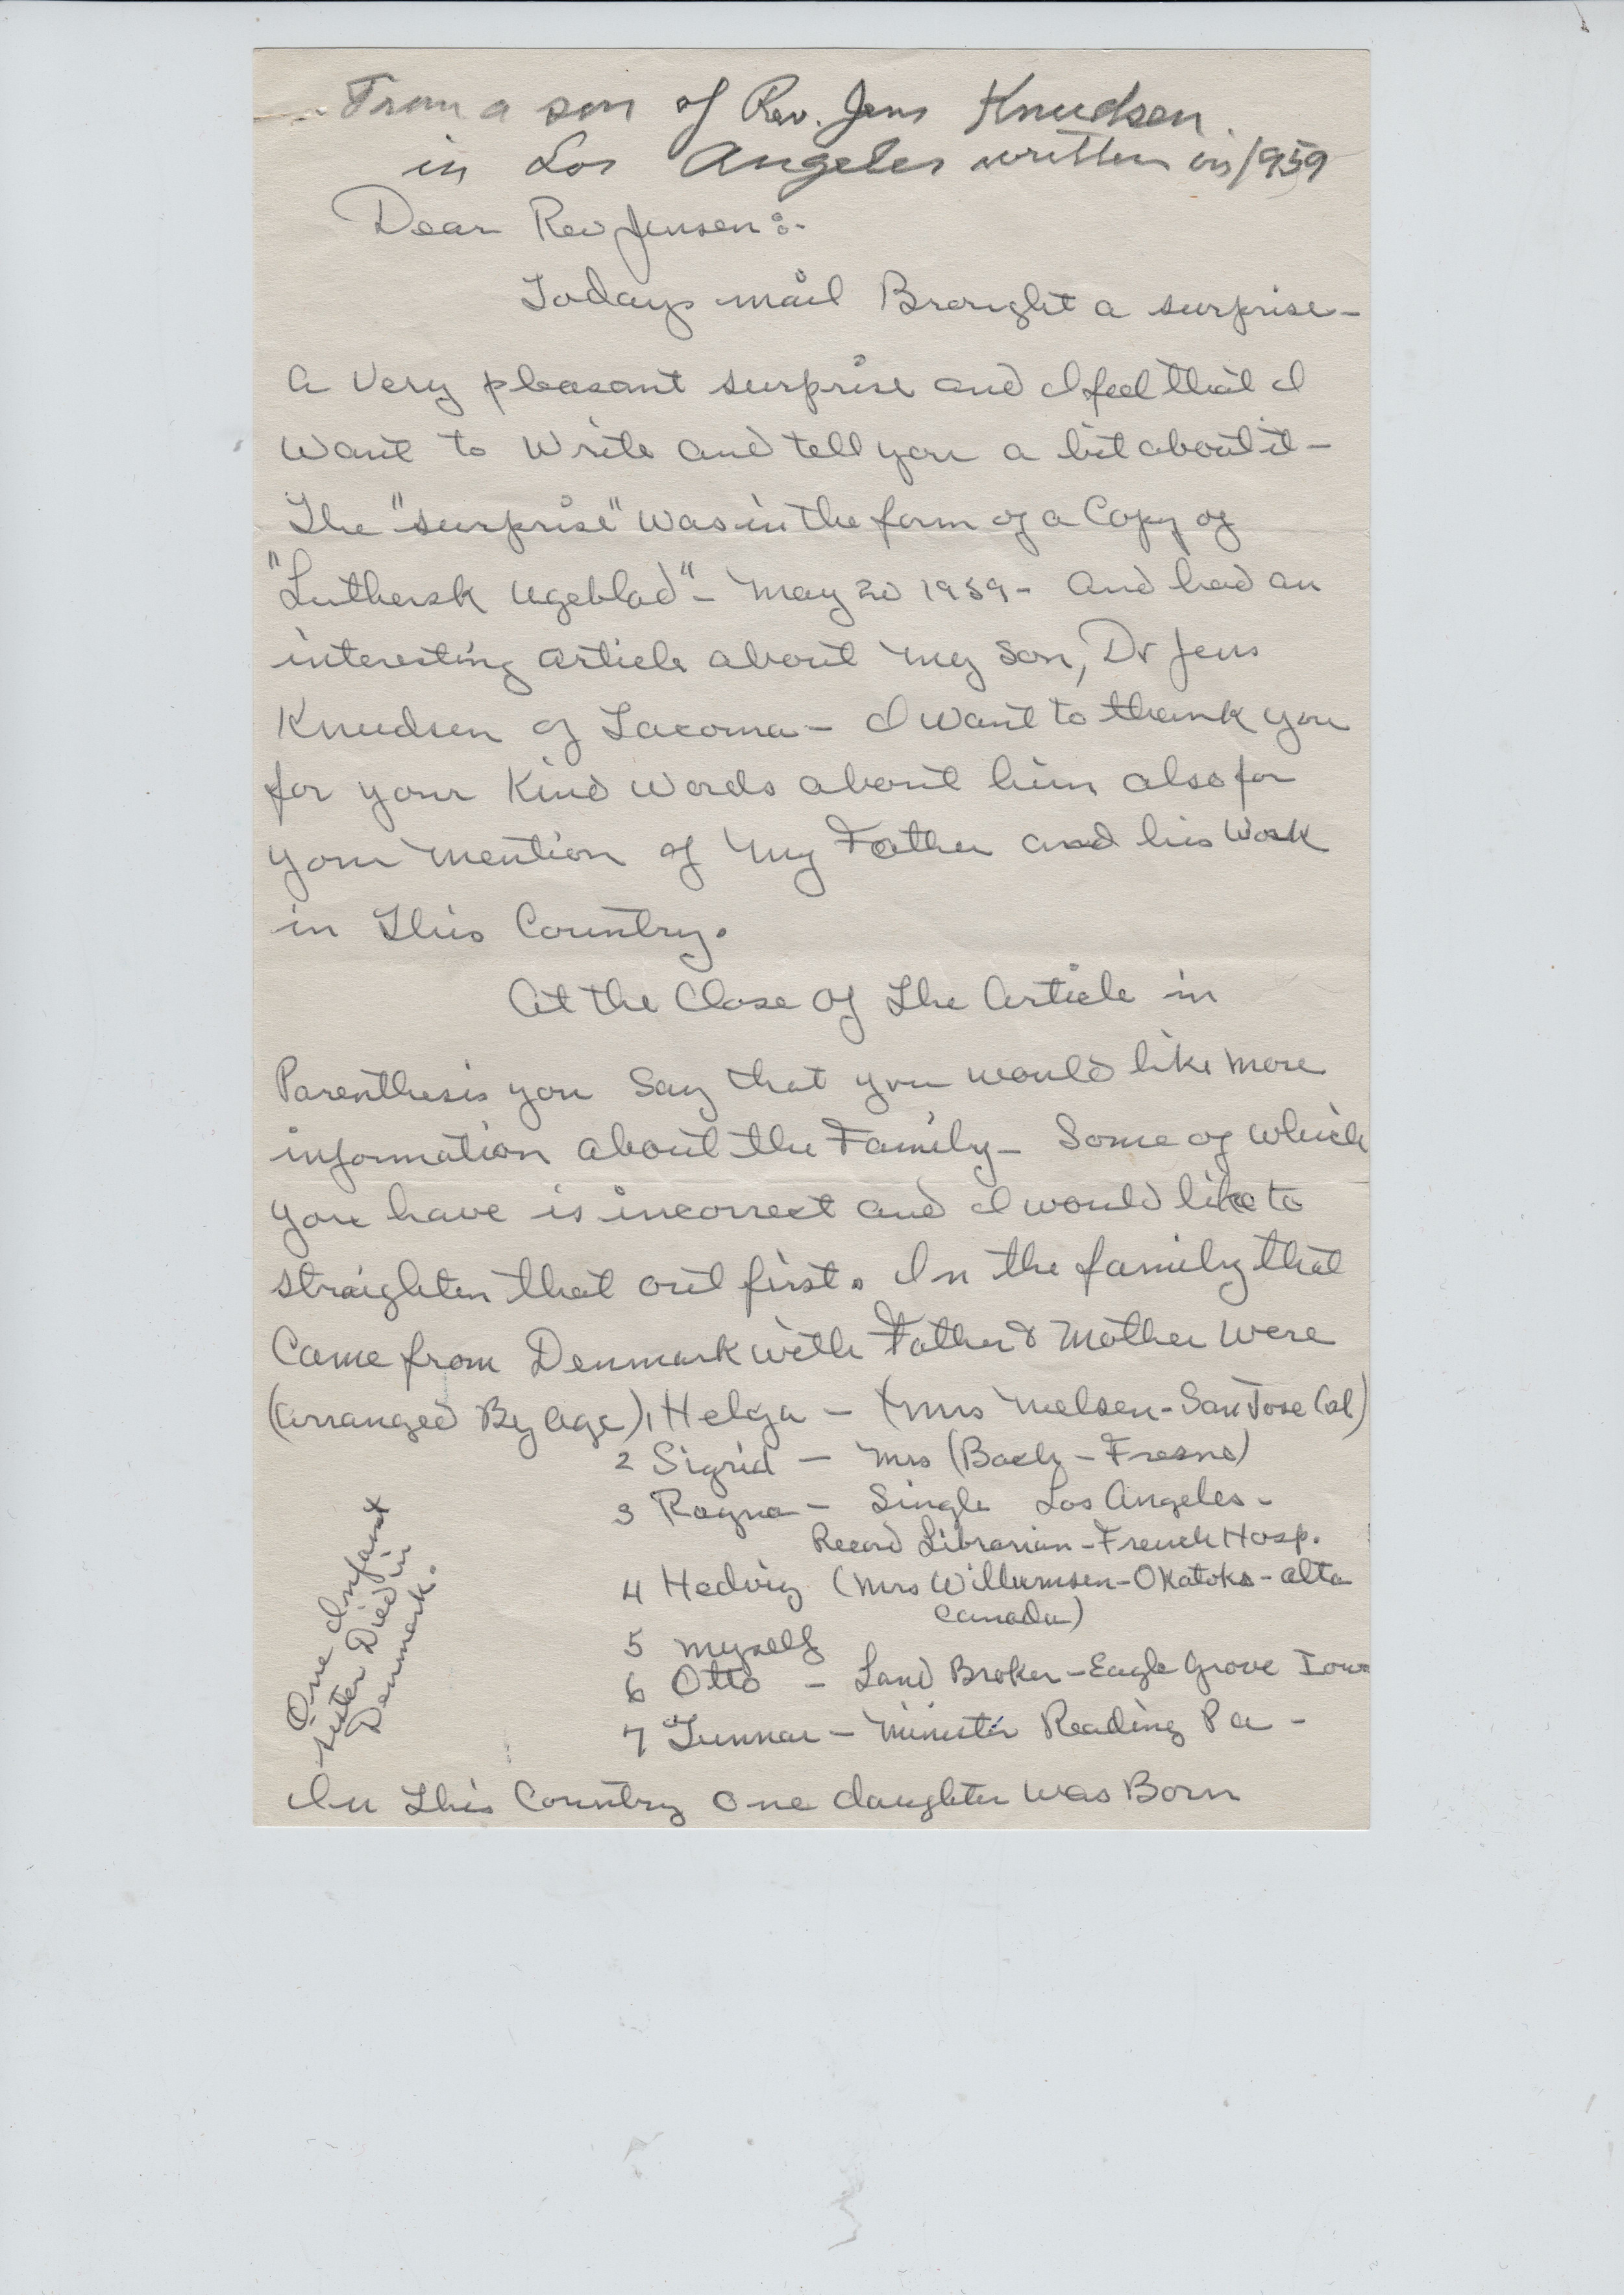 From a son of Rev. Jens Knudsen
in Los Angeles written in 1959
Dear Rev Jensen:-
Todays mail Brought a surprise-
a Very pleasant surprise and I feel that I
Want to Write and tell you a bit about it-
The "surprise" Was in the form of a Copy of
"Luthersk Ugeblad"- May 20 1959- and had an
interesting article about my son, Dr Jens
Knudsen of Tacoma- I want to thank you
for your Kind words about him also for
your mention of my Father and his Work
in This Country.
At the Close of The Article in
Parenthesis you Say that you would like more
information about the Family- Some of which
you have is incorrect and I would like to
straighten that out first. In the family that
Came from Denmark with Father & Mother Were
(arranged By age), 1 Helga - (Mrs Nelsen-San Jose Cal)
2 Sigrid - Mrs (Bach-Fresno)
3 Ragna - Single Los Angeles-
Record Librarian-French Hosp.
4 Hedvig (Mrs Willumsen-Okatoks-alta
Canada)
5 myself
6 Otto - Land Broker-Eagle Grove Iowa
7 Gunnar - Minister Reading Pa -
One Infant
sister Died in
Denmark.
In This Country One daughter Was Born